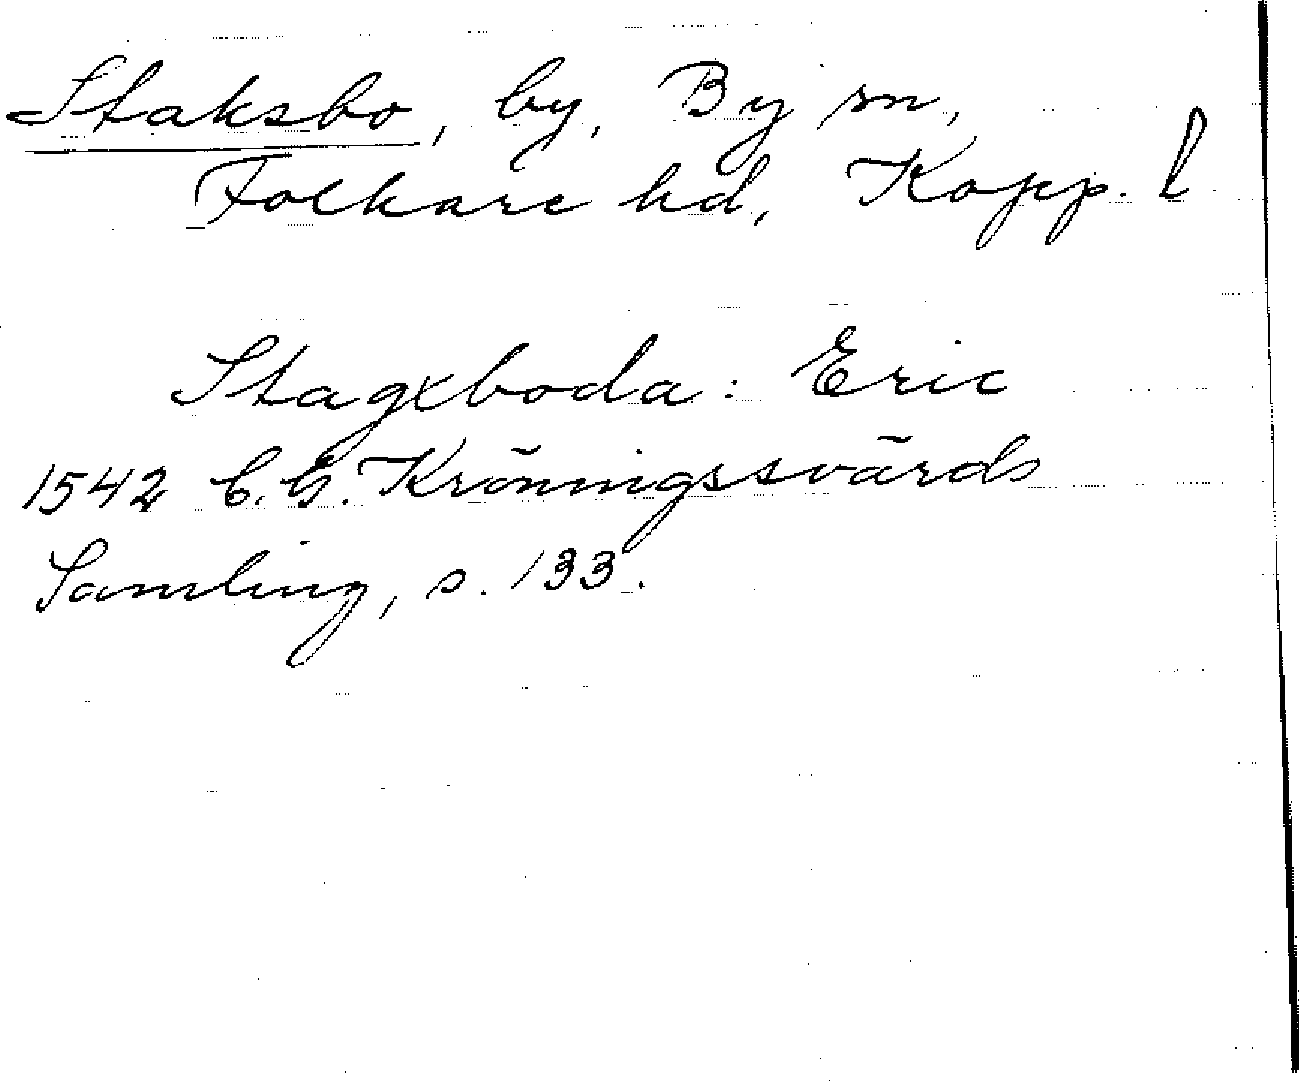 Staksbo, by, By sn,
Folkare hd, Kopp. l
Stagxboda: Eric
1542 C.G. Kröningssvärds
Samling, s. 133.